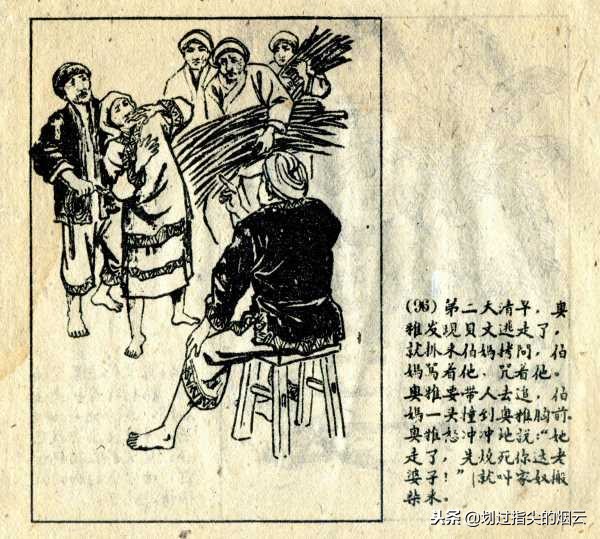 (96) 第二天清早，奥
雅发现贝文逃走了，
就抓来伯媽拷問，伯
媽骂着他、咒着他。
奥雅要带人去追，伯
媽一头撞到奥雅胸前。
奥雅怒冲冲地說：“她
走了，先烧死你这老
婆子！”就叫家奴搬
柴来。
头条 @划过指尖的烟云